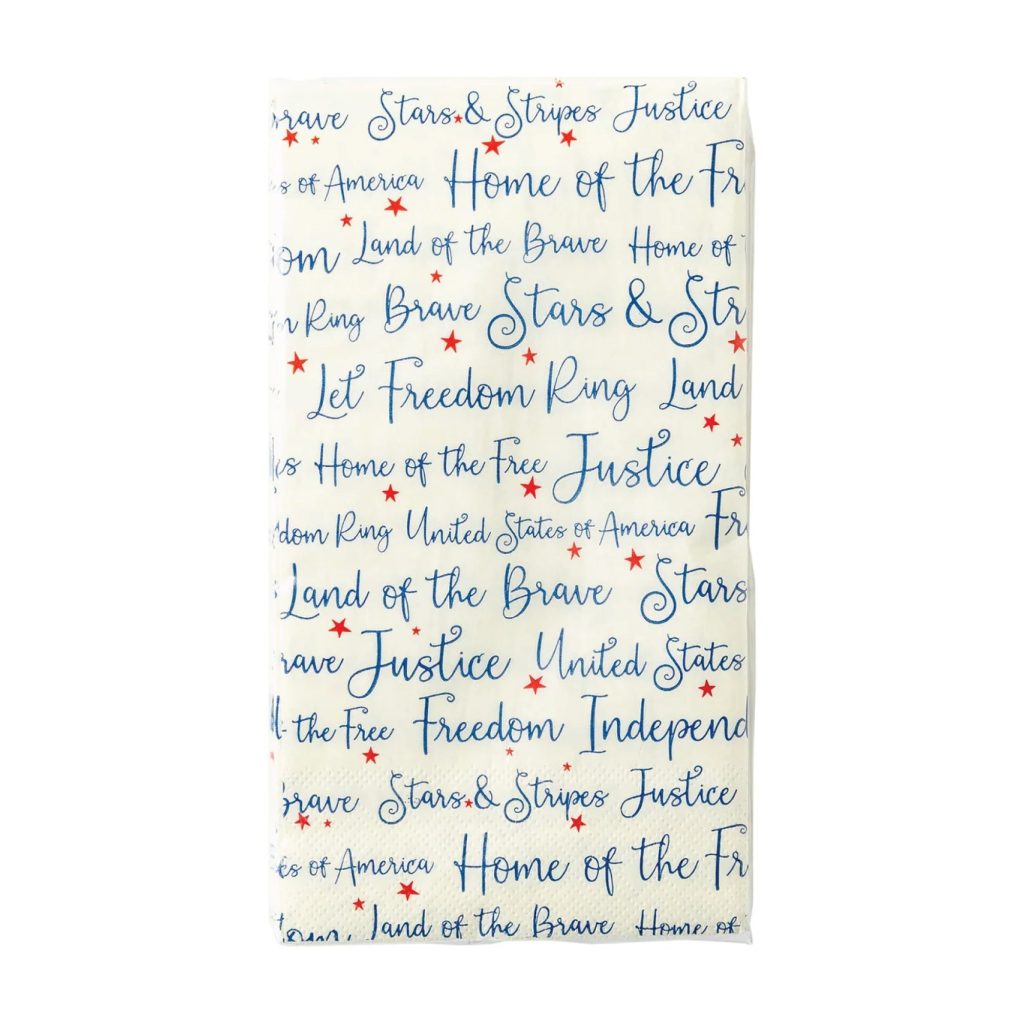 Brave Stars & Stripes Justice
es of America Home of the Fr
om Land of the Brave Home of
m Ring Brave Stars & Str
Let Freedom Ring Land
es Home of the Free Justice
dom Ring United States of America Fr
Land of the Brave Stars
rave Justice United States
the Free Freedom Independ
Brave Stars & Stripes Justice
es of America Home of the Fr
om Land of the Brave Home of